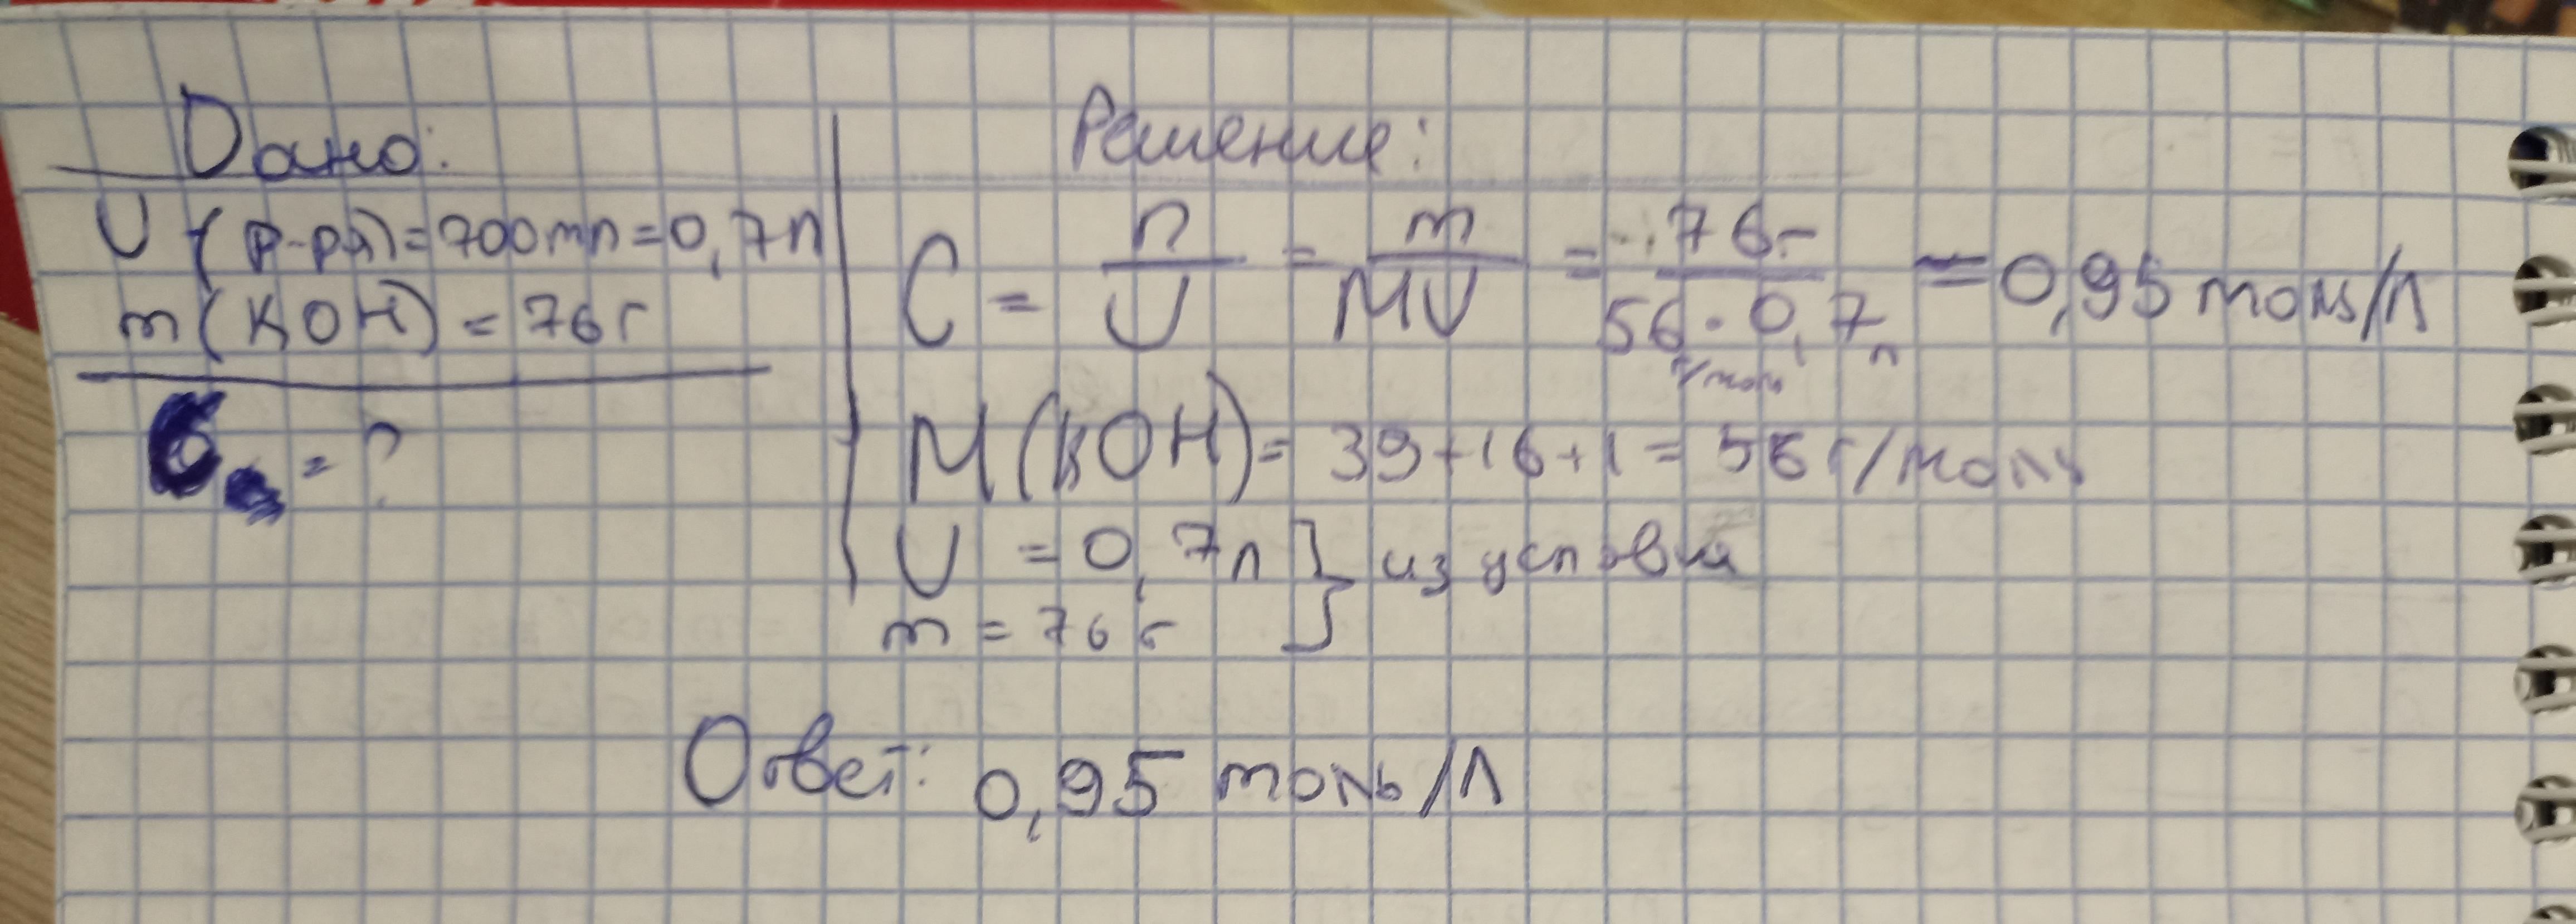 Дано:
V (р-ра) = 700 мл = 0,7 л
m (KOH) = 76 г
= ?
Решение:
C = n/V = m/MV = 76 г/56 г/моль · 0,7 л = 0,95 моль/л
M (KOH) = 39 + 16 + 1 = 56 г/моль
V = 0,7 л } из условия
m = 76 г
Ответ: 0,95 моль/л